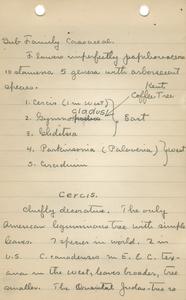 Sub Family Caesaceae.
Flowers imperfectly papilionaceous
10 stamens 5 genera with arborescent
species.
Kent.
Coffee Tree
1. Cercis (1 in West)
cladus
2. Gymno East
3. Gleditsia
4. Parkinsonia (Paloveria) West
5. Cercidium
Cercis.
Chiefly decorative. The only
American leguminous tree with simple
leaves. 7 species in world. 2 in
U.S. C. canadensis in E. & C. tex-
ana in the west, leaves broader, tree
smaller. The Oriental Judas tree is